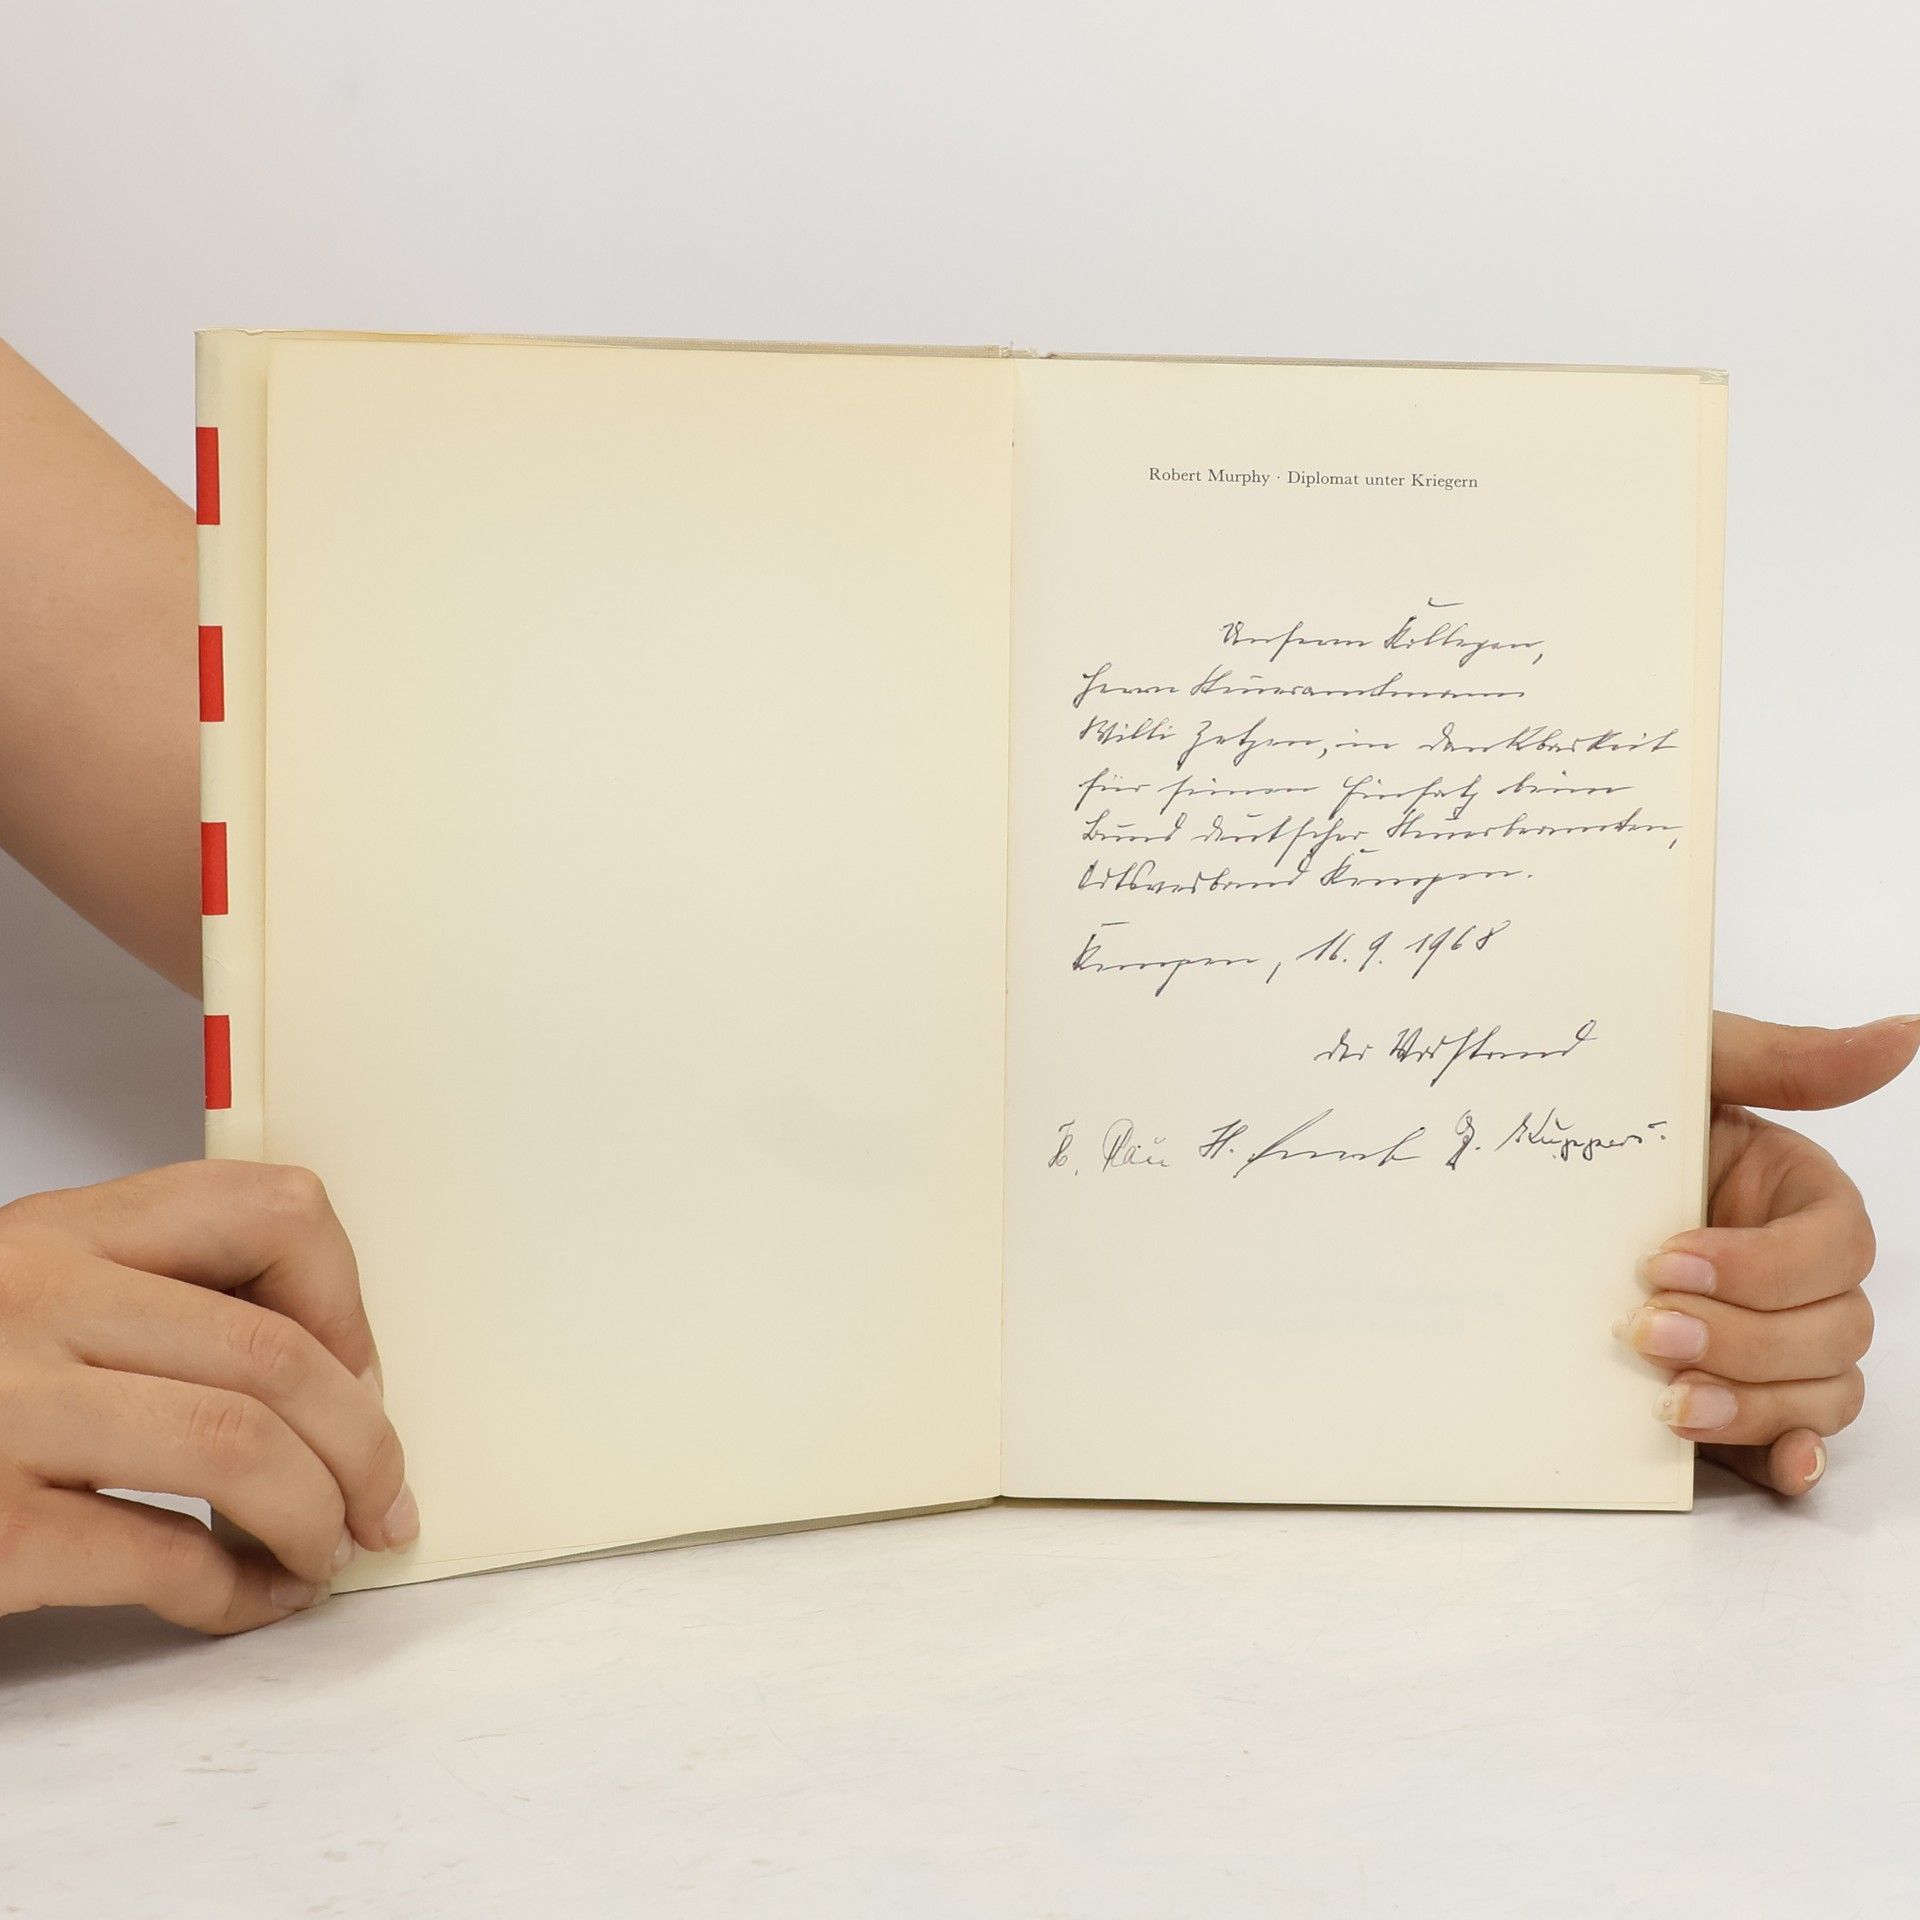 Robert Murphy · Diplomat unter Kriegern
Unserem Kollegen,
Herrn Steueramtmann
Willi Zetzen, in Dankbarkeit
für seinen Einsatz beim
Bund deutscher Steuerbeamten,
Ortsverband Kempen.
Kempen, 16. 9. 1968
der Vorstand
Rau H. J. Küppers.